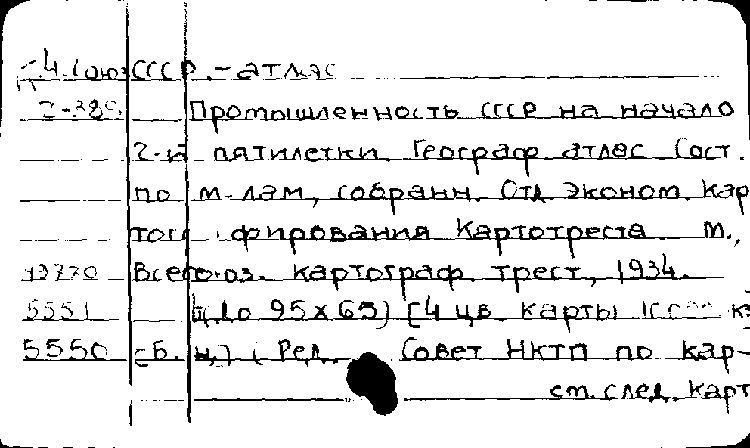 СССР. - атлас
Промышленность СССР на начало
2-й пятилетки. Географ. атлас. Сост.
по м-лам, собранн. Отд. эконом. кар
фирования Картотреста. М.,
Всесоюз. картограф. трест, 1934.
5551 (до 95х65) [4 цв. карты
5550 [Б. ц.] Ред. Совет НКТП по кар-
ст. след. карт